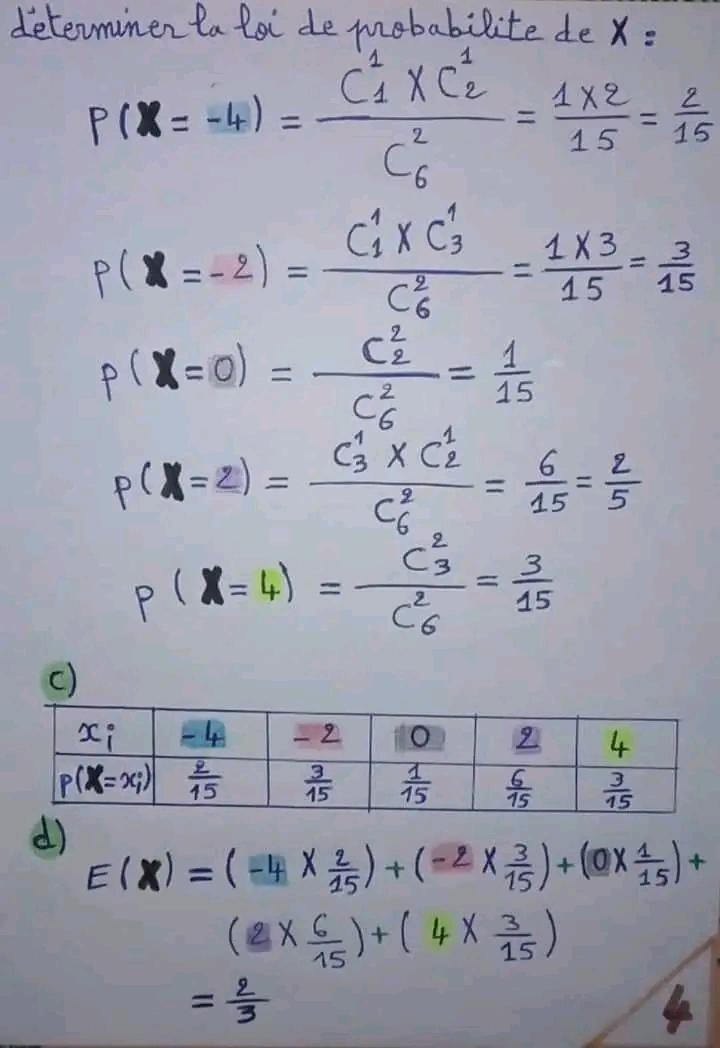 déterminer la loi de probabilite de X :
P(X = -4) = (C₁¹ X C₂¹) / C₆² = (1X2)/15 = 2/15
P(X = -2) = (C₁¹ X C₃¹) / C₆² = (1X3)/15 = 3/15
P(X = 0) = C₂² / C₆² = 1/15
P(X = 2) = (C₃¹ X C₂¹) / C₆² = 6/15 = 2/5
P(X = 4) = C₃² / C₆² = 3/15
c)
xᵢ -4 -2 0 2 4
P(X=xᵢ) 2/15 3/15 1/15 6/15 3/15
d)
E(X) = (-4 X 2/15) + (-2 X 3/15) + (0 X 1/15) +
(2 X 6/15) + (4 X 3/15)
= 2/3
4